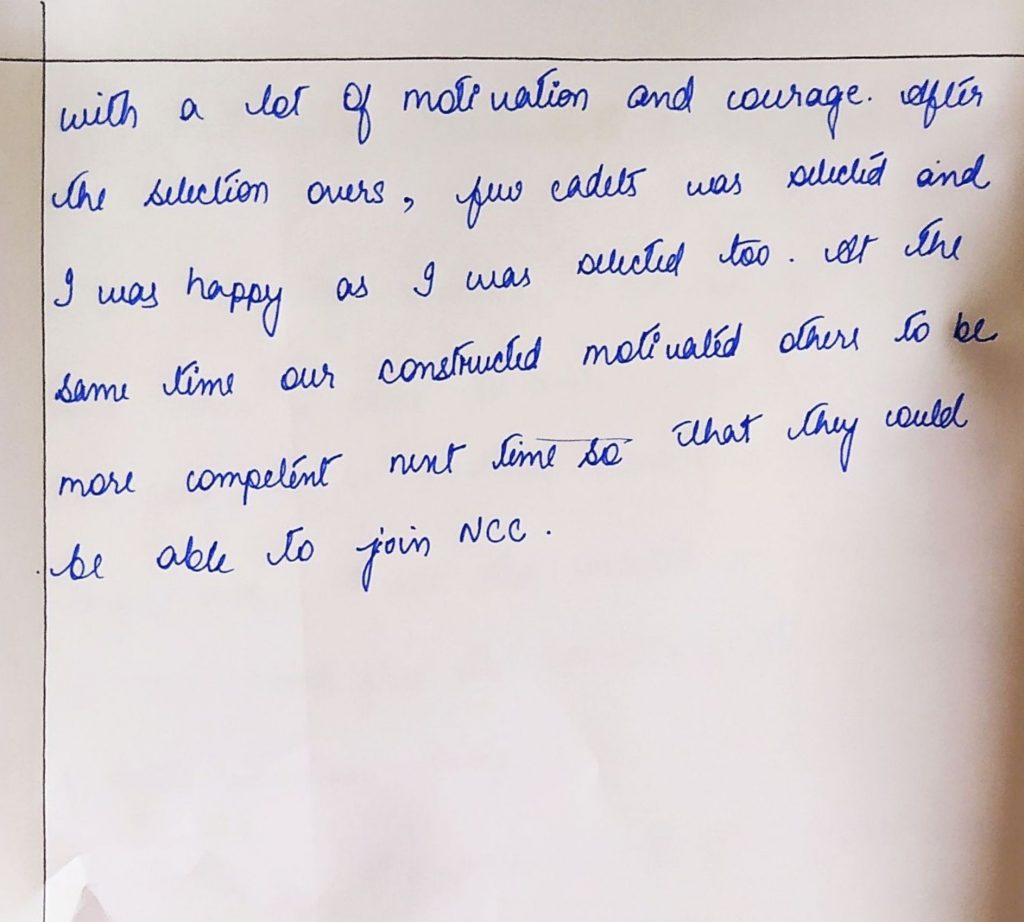 with a lot of motivation and courage. After
the selection overs, few cadets was selected and
I was happy as I was selected too. At the
same time our constructed motivated others to be
more competent next time so that they could
be able to join NCC.